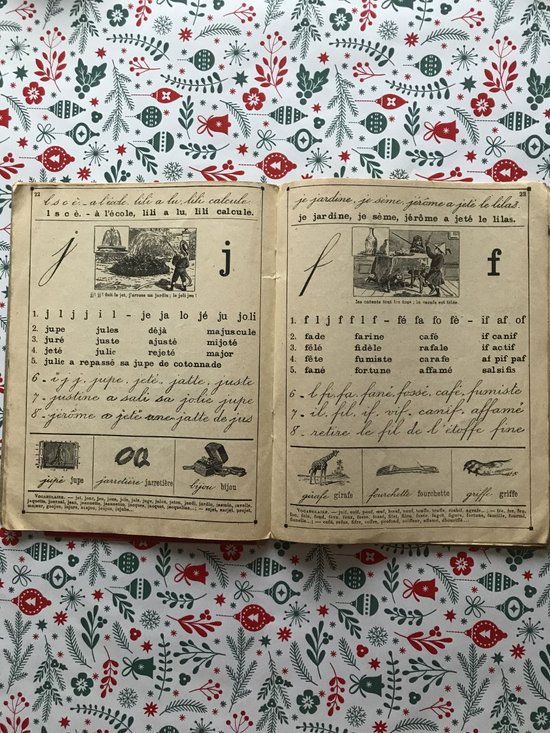 22
l s o è. - à l'école, lili a lu, lili calcule.
l s o è. - à l'école, lili a lu, lili calcule.
j
j
jj ! jj ! fait le jet, j'arrose un jardin ; le joli jeu !
1. j l j j i l - je ja lo jé ju joli
2. jupe jules déjà majuscule
3. juré juste ajusté mijoté
4. jeté julie rejeté major
5. julie a repassé sa jupe de cotonnade
6 - i j y, jupe, jeté, jatte, juste
7 - justine a sali sa jolie jupe
8 - jérôme a jeté une jatte de jus
jupe jupe
jarretière jarretière
bijou bijou
VOCABULAIRE. — jet, jour, jeu, joue, joie, juge,
23
je jardine, je sème, jérôme a jeté le lilas.
je jardine, je sème, jérôme a jeté le lilas.
f
f
Les enfants font fou fou ; la carafe est fêlée.
1. f l j f f l f - fé fa fo fè - if af of
2. fade farine café if canif
3. fêlé fidèle rafale if actif
4. fête fumiste carafe af pif paf
5. fané fortune affamé salsifis
6 - l, fi, fa, fane, fossé, café, fumiste
7 - il, fil, if, vif, canif, affamé
8 - retire le fil de l'étoffe fine
girafe girafe
fourchette fourchette
griffe griffe
VOCABULAIRE. — juif,